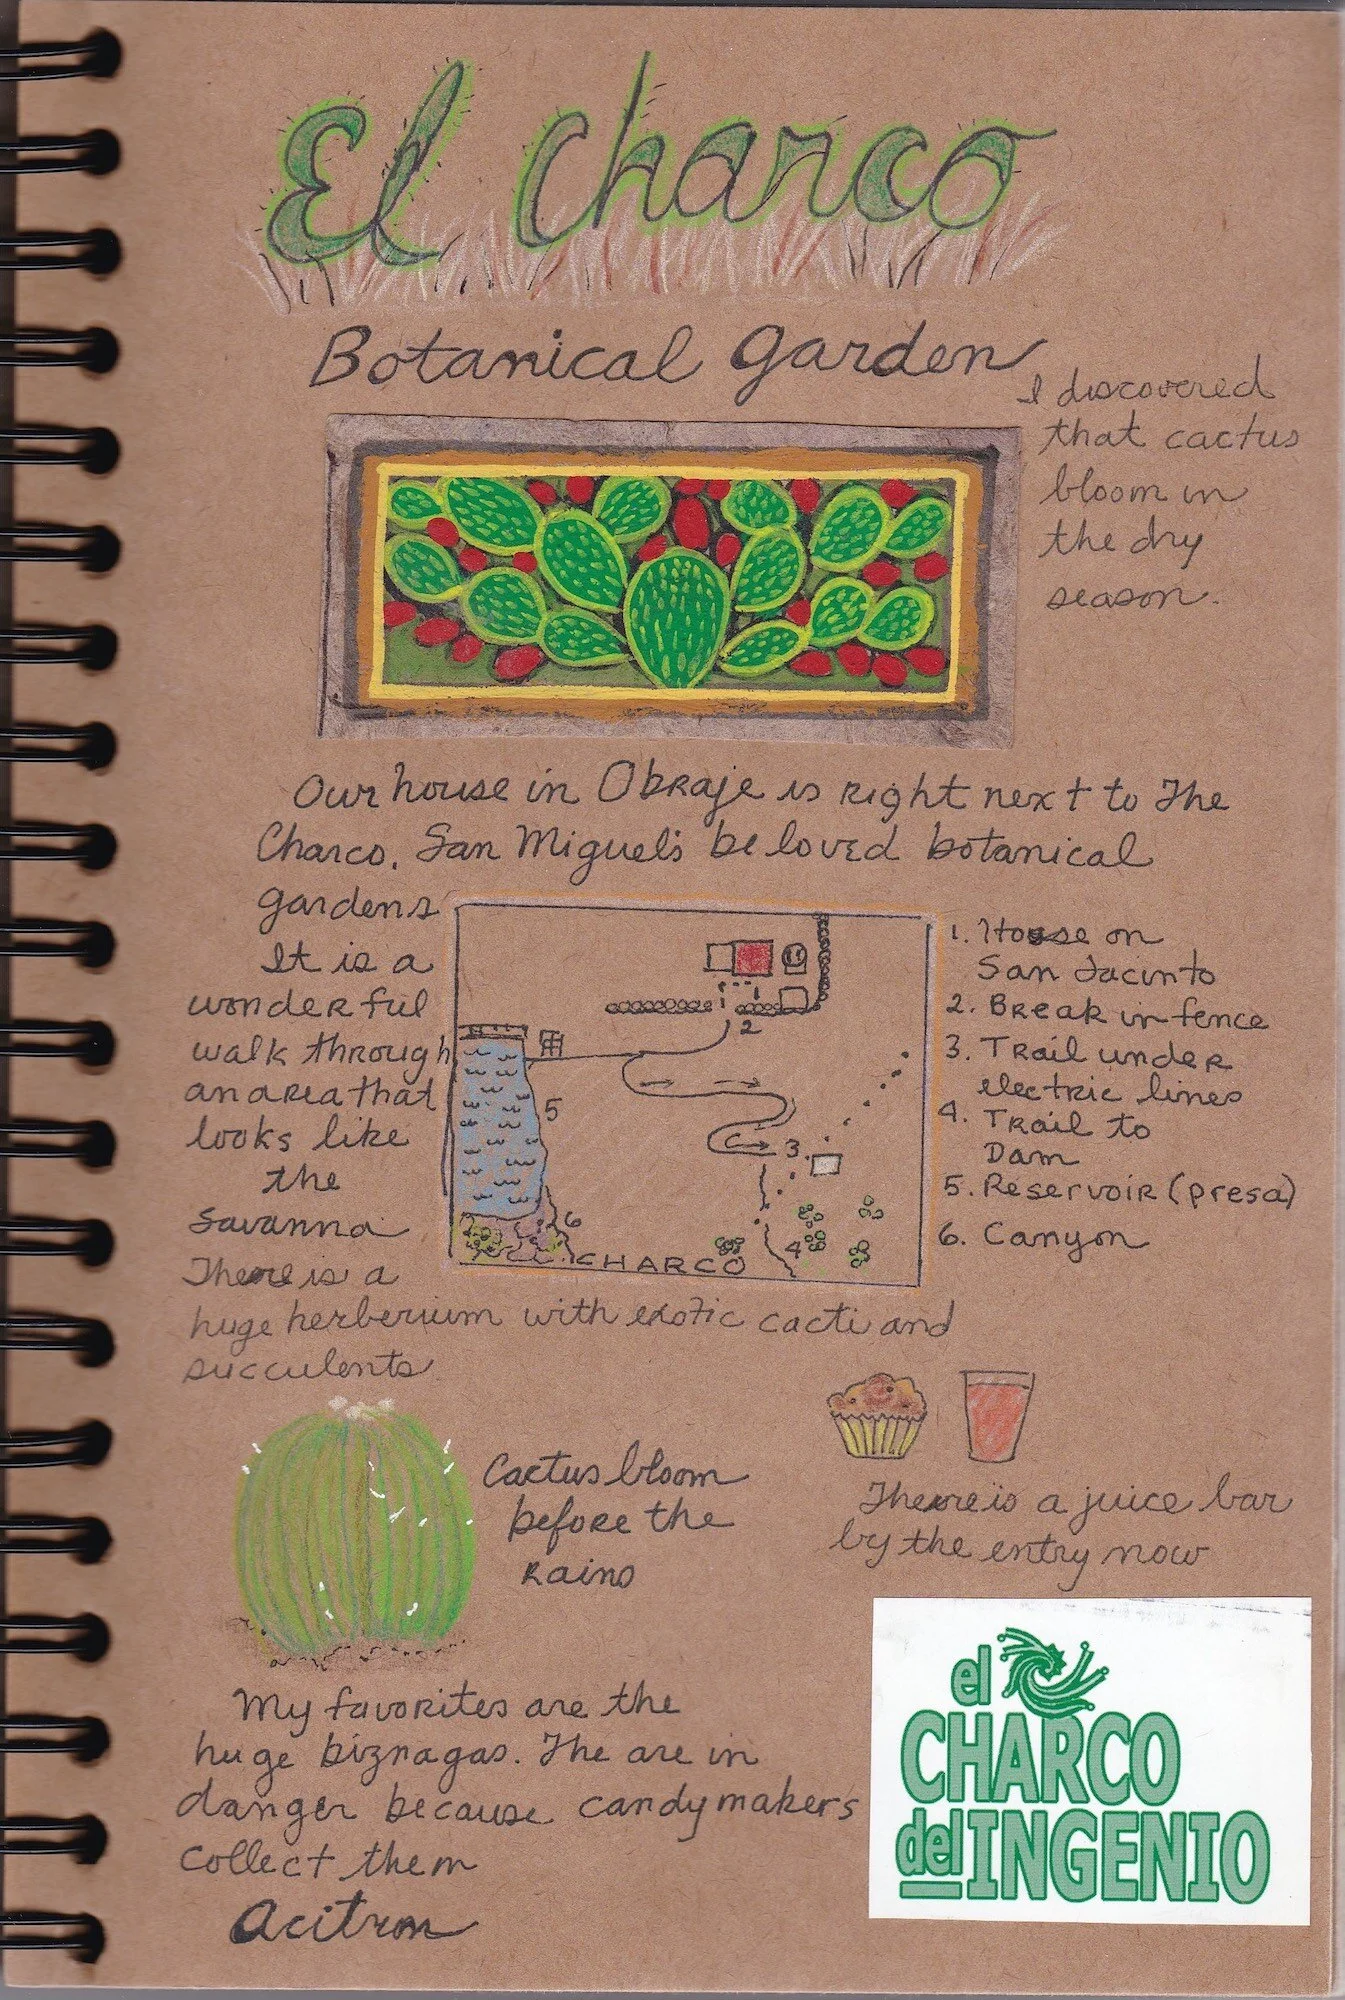 El Charco
Botanical Garden
I discovered
that cactus
bloom in
the dry
season.
Our house in Obraje is right next to The
Charco. San Miguel's beloved botanical
gardens
It is a
wonderful
walk through
an area that
looks like
the
Savanna
There is a
huge herberium with exotic cacti and
succulents.
2
5
3.
6
4
CHARCO
1. House on
San Jacinto
2. Break in fence
3. Trail under
electric lines
4. Trail to
Dam
5. Reservoir (presa)
6. Canyon
Cactus bloom
before the
rains
There is a juice bar
by the entry now
My favorites are the
huge biznagas. The are in
danger because candymakers
collect them
Acitron
el
CHARCO
del INGENIO